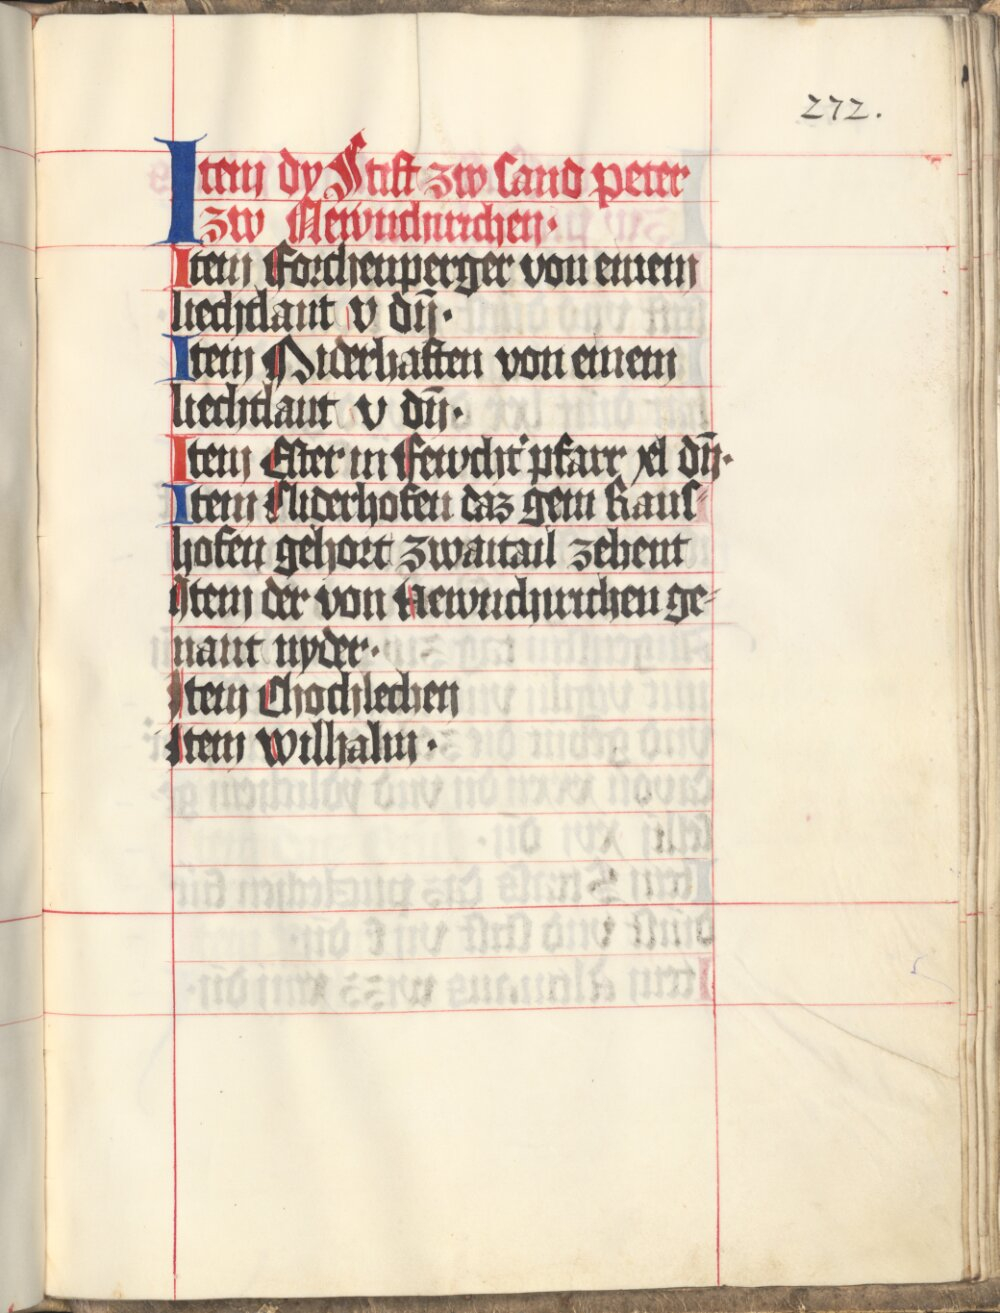 272.
Item dy Stift zw sand peter
zw Newnchirchen.
Item Forchenperger von einem
liechtlant v dn̄.
Item Niderhaften von einem
liechtlant v dn̄.
Item Ester in Fewcht' pfarr xl dn̄.
Item Niderhofen daz gein Rans-
hofen gehort zwaitail zehent
Item der von Newnchirichen ge-
nant nyder.
Item Chochlechen
Item Wilhalm.